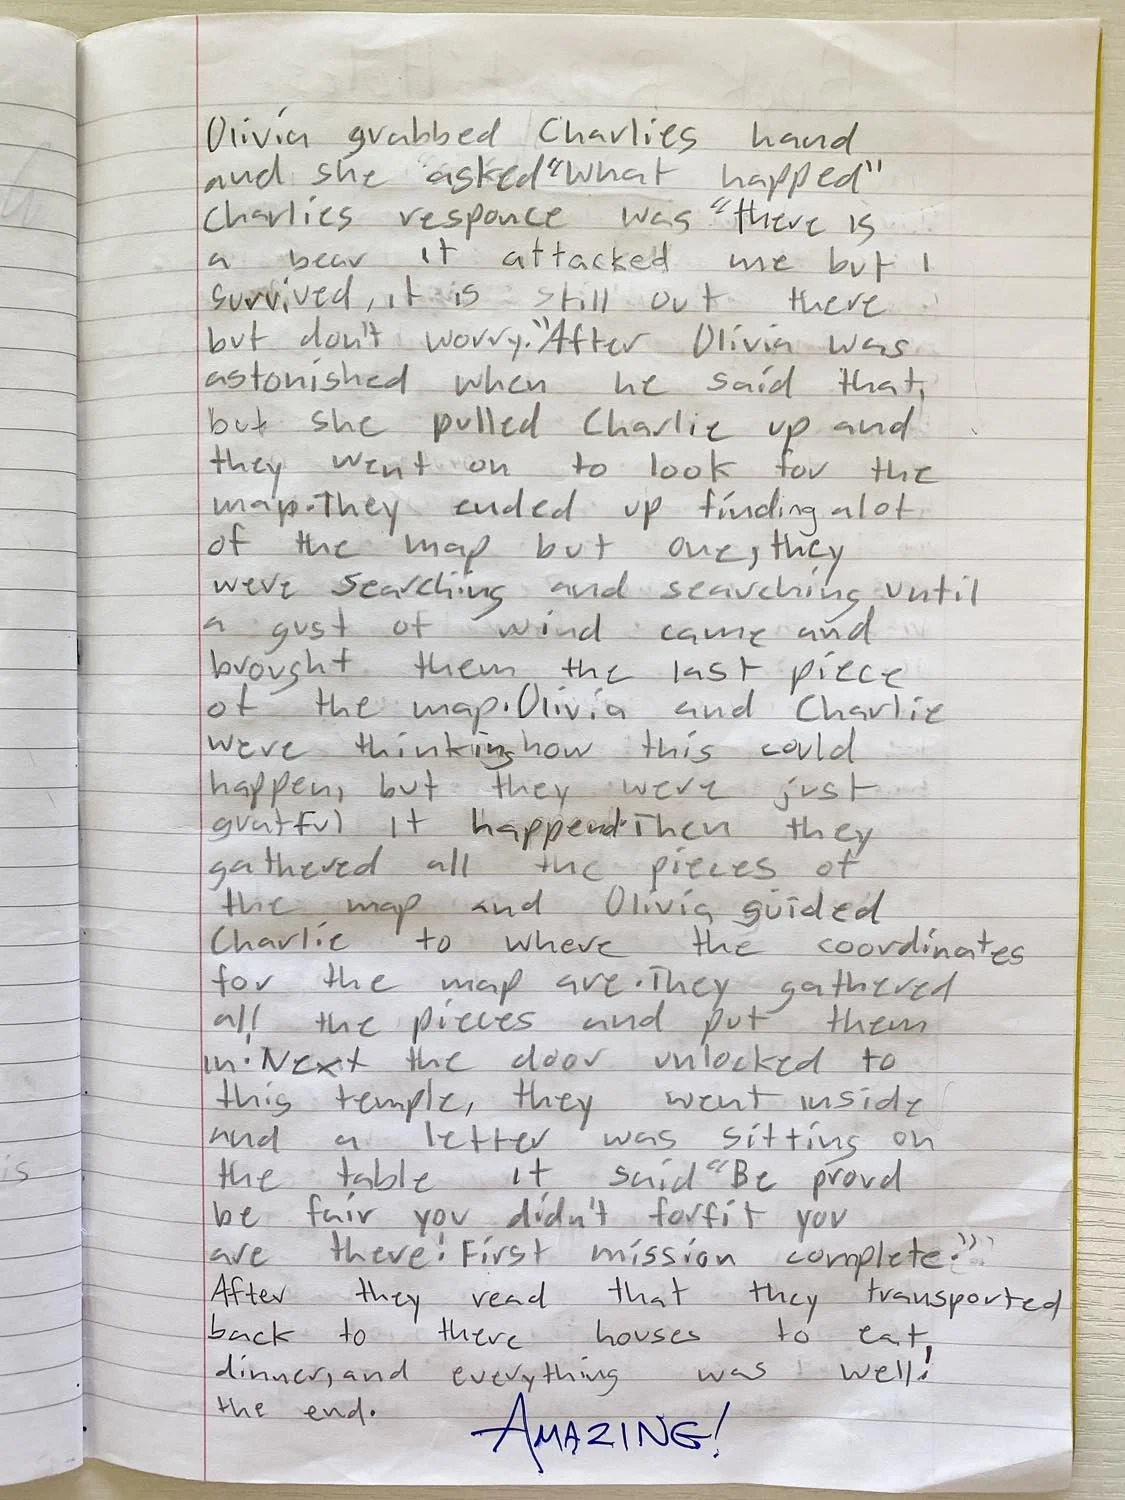 Olivia grabbed Charlies hand
and she asked "What happed"
Charlies responce was "there is
a bear it attacked me but I
survived, it is still out there
but don't worry." After Olivia was
astonished when he said that,
but she pulled Charlie up and
they went on to look for the
map. They ended up finding alot
of the map but one, they
were searching and searching until
a gust of wind came and
brought them the last piece
of the map. Olivia and Charlie
were thinking how this could
happen, but they were just
gratful it happend. Then they
gathered all the pieces of
the map and Olivia guided
Charlie to where the coordinates
for the map are. They gathered
all the pieces and put them
in. Next the door unlocked to
this temple, they went inside
and a letter was sitting on
the table it said "Be proud
be fair you didn't forfit you
are there! First mission complete."
After they read that they transported
back to there houses to eat,
dinner, and everything was well!
the end.
AMAZING!
is